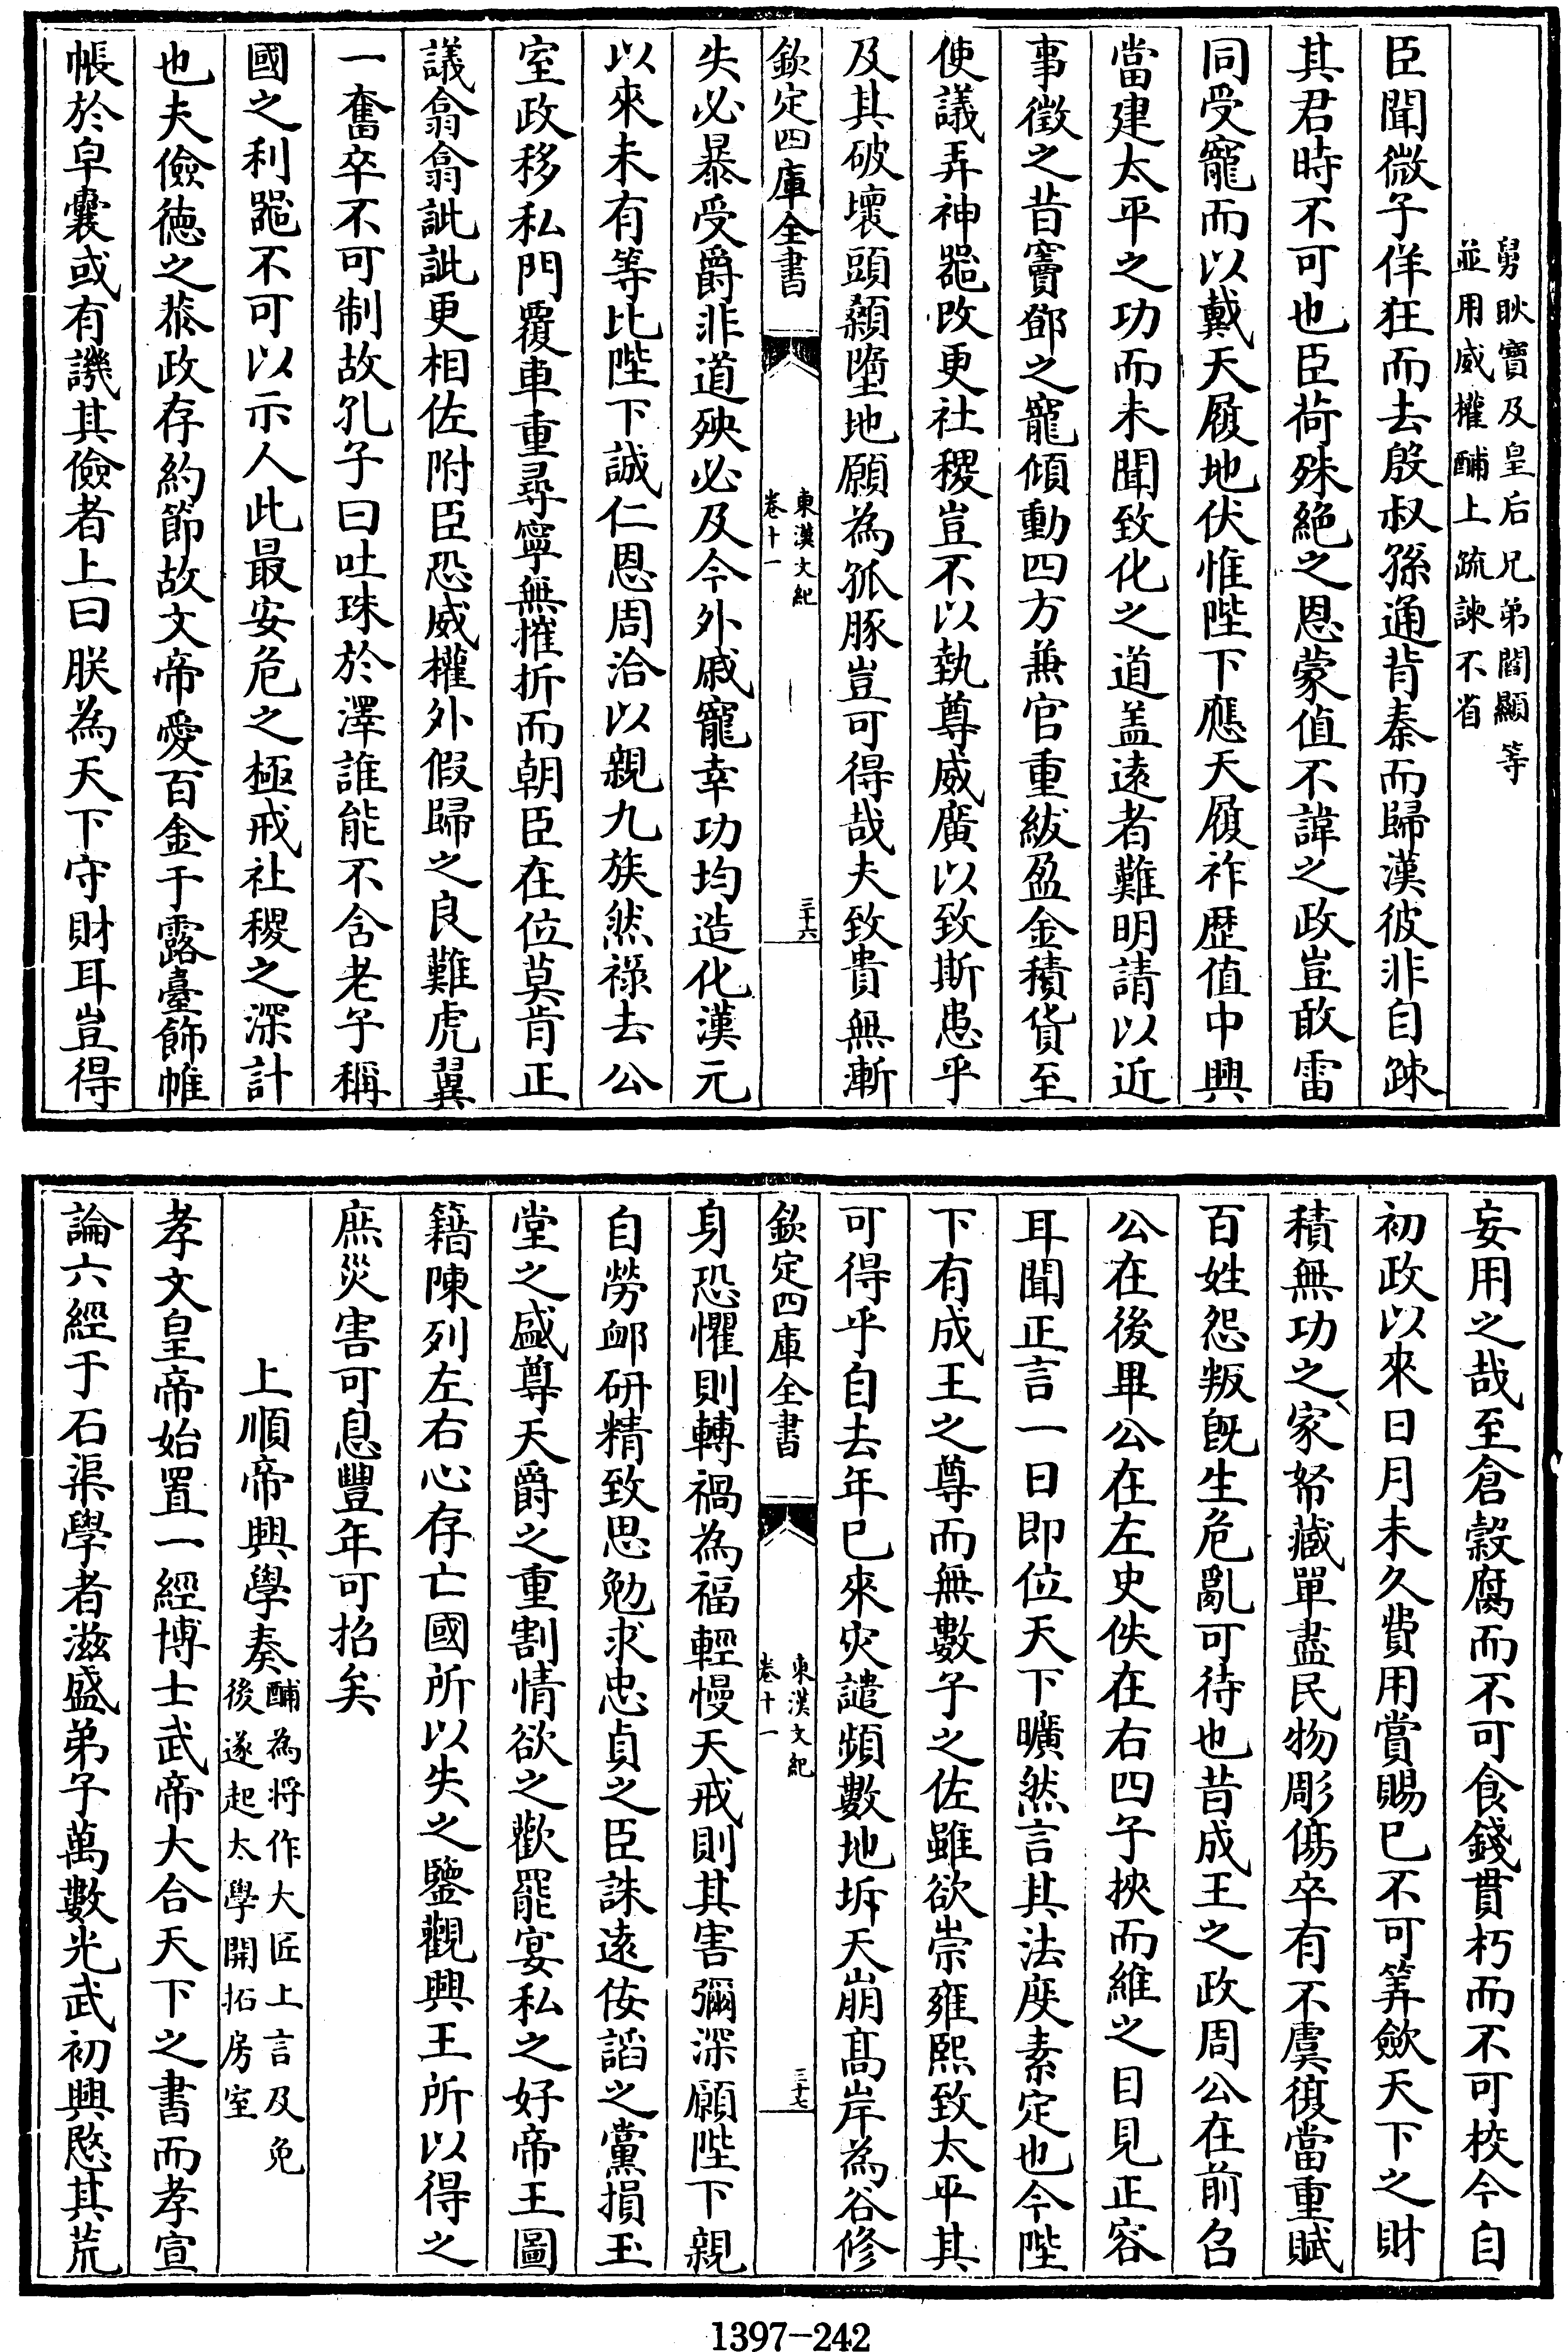 舅耿寶及皇后兄弟閻顯等
並用威權酺上疏諫不省
臣聞微子佯狂而去殷叔孫通背秦而歸漢彼非自疎
其君時不可也臣荷殊絶之恩蒙值不諱之政豈敢雷
同受寵而以戴天履地伏惟陛下應天履祚歴值中興
當建太平之功而未聞致化之道盖遠者難明請以近
事徵之昔竇鄧之寵傾動四方兼官重紱盈金積貨至
使議弄神噐改更社稷豈不以執尊威廣以致斯患乎
及其破壞頭顙墮地願為孤豚豈可得哉夫致貴無漸
欽定四庫全書
東漢文紀
卷十一
三十六
失必暴受爵非道殃必及今外戚寵幸功均造化漢元
以來未有等比陛下誠仁恩周洽以親九族然祿去公
室政移私門覆車重尋寧無摧折而朝臣在位莫肯正
議翕翕訿訿更相佐附臣恐威權外假歸之良難虎翼
一奮卒不可制故孔子曰吐珠於澤誰能不含老子稱
國之利噐不可以示人此最安危之極戒社稷之深計
也夫儉德之恭政存約節故文帝愛百金于露臺飾帷
帳於皁囊或有譏其儉者上曰朕為天下守財耳豈得
妄用之哉至倉穀腐而不可食錢貫朽而不可校今自
初政以來日月未久費用賞賜已不可筭歛天下之財
積無功之家帑藏單盡民物彫傷卒有不虞復當重賦
百姓怨叛既生危亂可待也昔成王之政周公在前召
公在後畢公在左史佚在右四子挾而維之目見正容
耳聞正言一日即位天下曠然言其法度素定也今陛
下有成王之尊而無數子之佐雖欲崇雍熙致太平其
可得乎自去年已來灾譴頻數地坼天崩高岸為谷修
欽定四庫全書
東漢文紀
卷十一
三十七
身恐懼則轉禍為福輕慢天戒則其害彌深願陛下親
自勞䘏研精致思勉求忠貞之臣誅遠佞謟之黨損玉
堂之盛尊天爵之重割情欲之歡罷宴私之好帝王圖
籍陳列左右心存亡國所以失之鑒觀興王所以得之
庶災害可息豐年可招矣
上順帝興學奏
酺為将作大匠上言及免
後遂起太學開拓房室
孝文皇帝始置一經博士武帝大合天下之書而孝宣
論六經于石渠學者滋盛弟子萬數光武初興愍其荒
1397-242